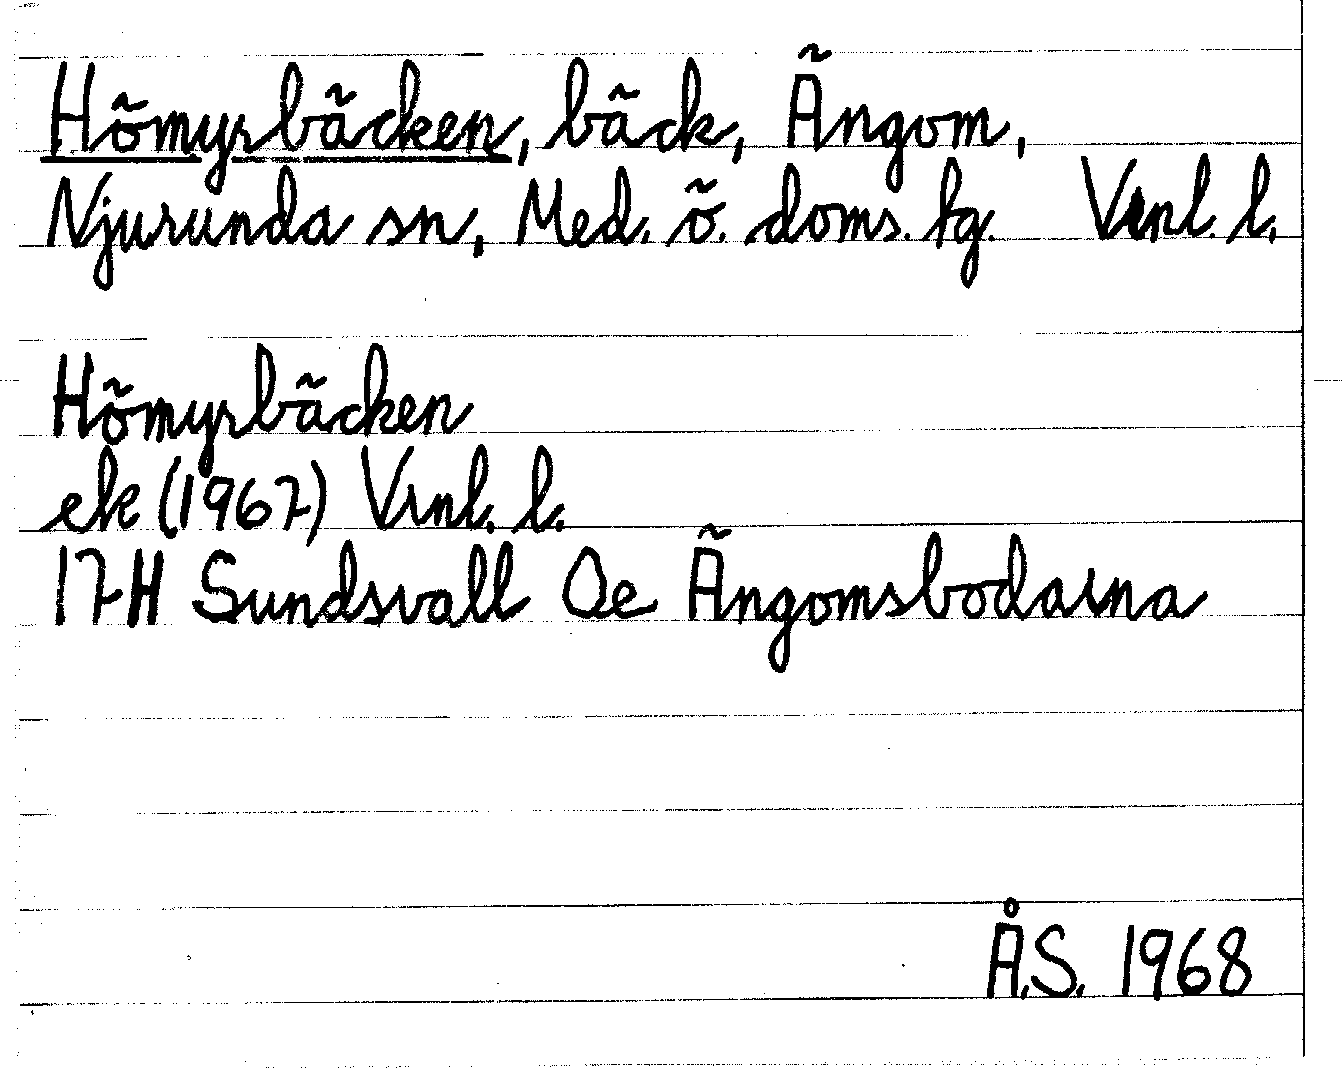 Hömyrbäcken, bäck, Ängom,
Njurunda sn, Med. ö. doms. tg. Vnl. l.
Hömyrbäcken
ek (1967) Vnl. l.
17H Sundsvall Oe Ängomsbodarna
Å.S. 1968